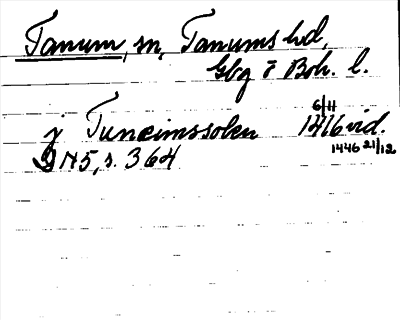 Tanum, sn, Tanums hd,
Gbg o Boh. l.
6/11
j Tuneimssoken 1416 vid.
1446 21/12
DN5, s. 364